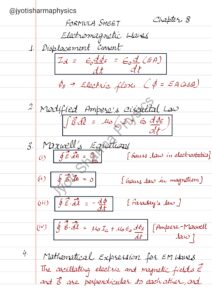 @jyotisharmaphysics
FORMULA SHEET
Chapter 8
Electromagnetic Waves
1. Displacement Current
Id = ε₀ dφE/dt = ε₀ d/dt (EA)
φE → Electric flux (φ = EA cosθ)
2. Modified Ampere's Circuital Law
∮ B⃗.dl⃗ = μ₀I + μ₀ε₀ dφE/dt
3. Maxwell's Equations
(i) [Gauss law in electrostatics]
(ii) = 0 [Gauss law in magnetism]
(iii) ∮ E⃗.dl⃗ = -dφ/dt [Faraday's law]
(iv) ∮ B⃗.dl⃗ = μ₀Ic + μ₀ε₀ dφE/dt [Ampere-Maxwell law]
4. Mathematical Expression for EM Waves
The oscillating electric and magnetic fields E⃗
and B⃗ are perpendicular to each other, and
Jyoti Sharma Physics